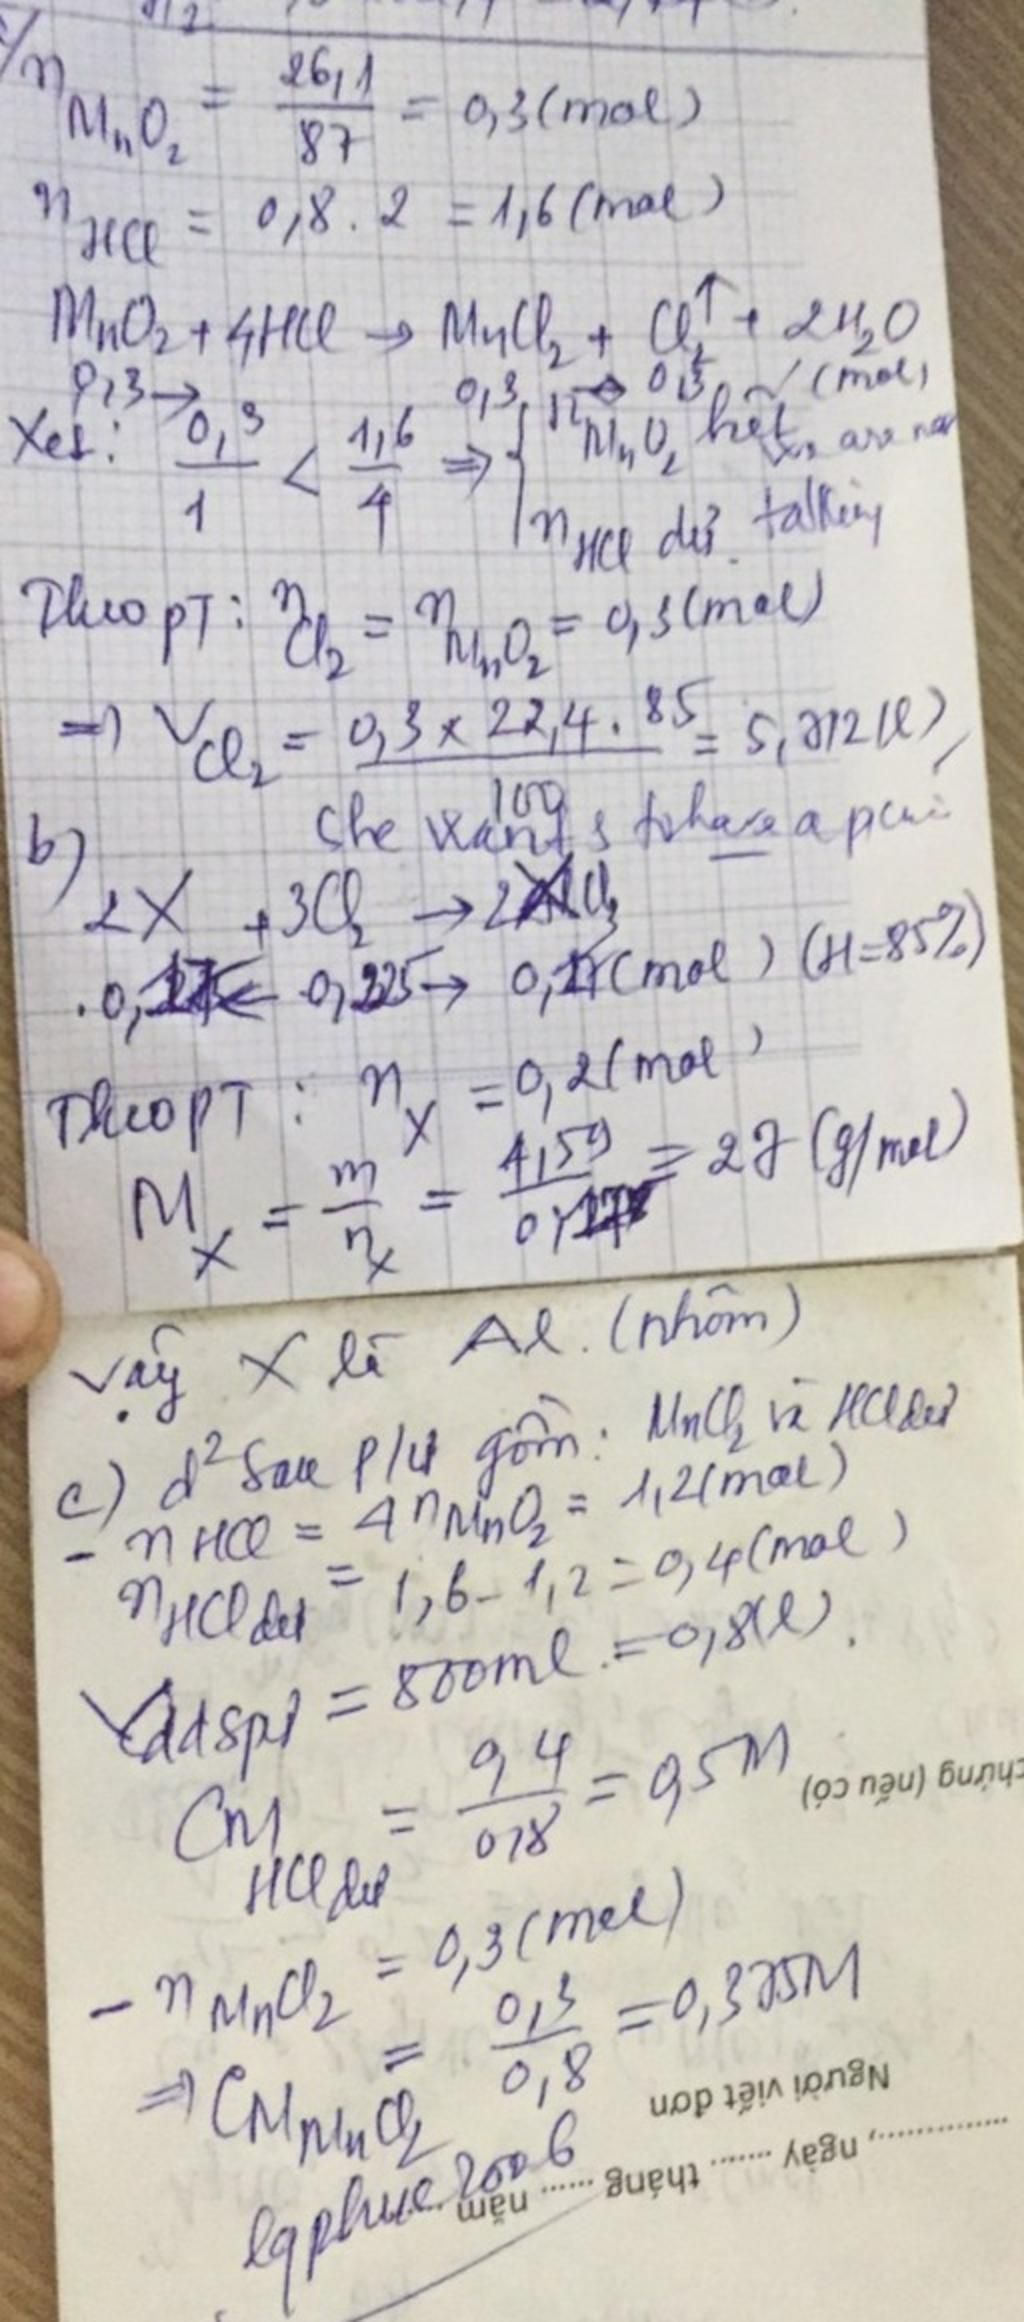 n MnO2 = 26,1/87 = 0,3 (mol)
n HCl = 0,8 . 2 = 1,6 (mol)
MnO2 + 4HCl → MnCl2 + Cl2↑ + 2H2O
0,3 → 0,3 → 0,3 (mol)
Xét: 0,3/1 < 1,6/4 ⇒ { n MnO2 hết
n HCl dư. talking
Theo PT: n Cl2 = n MnO2 = 0,3 (mol)
⇒ V Cl2 = 0,3 x 22,4 . 85/100 = 5,712 (l)
She wants to have a
b)
2X + 3Cl2 → 2XCl3
(mol) (H=85%)
Theo PT: n X = 0,2 (mol)
M X = m/n X = 4,59/0,17 = 27 (g/mol)
Vậy X là Al. (nhôm)
c) d2 sau p/ư gồm: MnCl2 và HCl dư
- n HCl = 4 n MnO2 = 1,2 (mol)
n HCl dư = 1,6 - 1,2 = 0,4 (mol)
Vddspư = 800ml = 0,8 (l).
CM HCl dư = 0,4/0,8 = 0,5M
chứng (nếu có)
- n MnCl2 = 0,3 (mol)
⇒ CM MnCl2 = 0,3/0,8 = 0,375M
Người viết đơn
........., ngày ...... tháng ...... năm ......
lqphuc2006